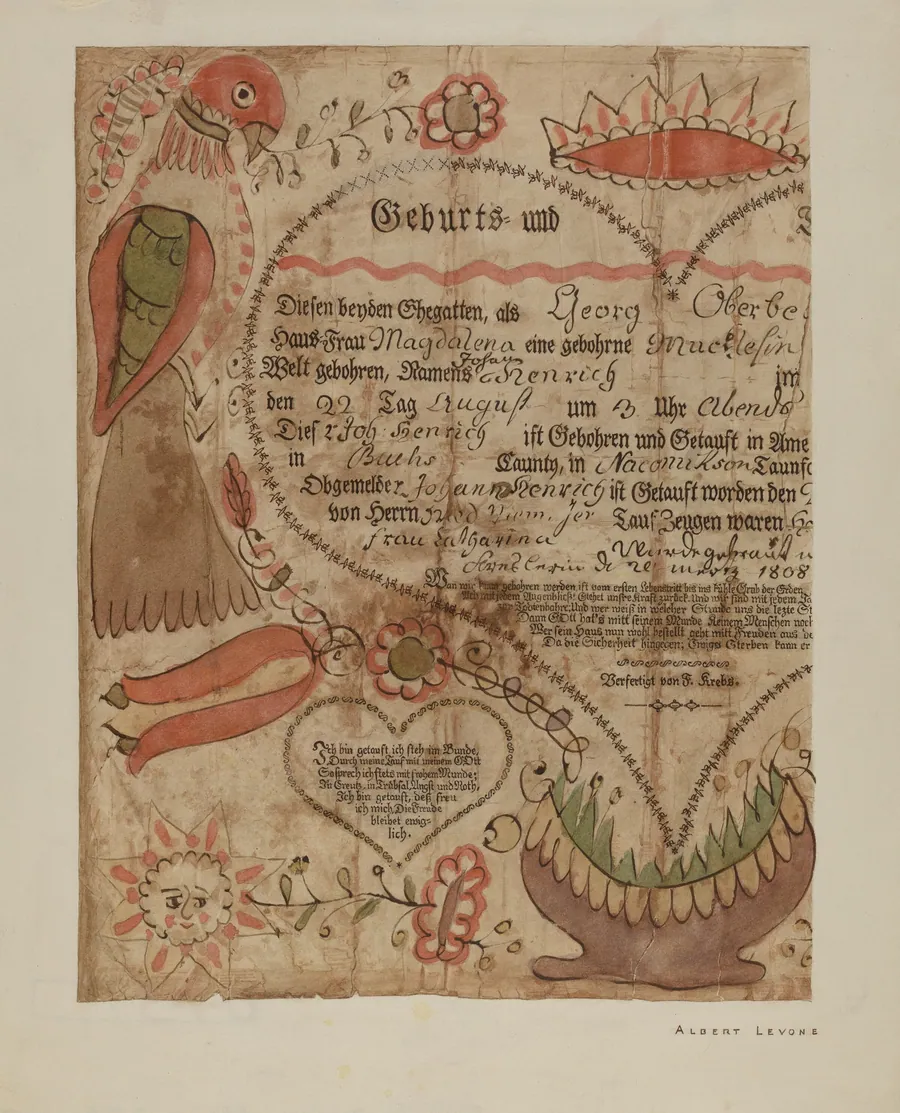 Geburts- und
Diesen beyden Ehegatten, als Georg Oberbe
Haus-Frau Magdalena eine gebohrne Mucklesin
Johan
Welt gebohren, Namens Henrich im
den 22 Tag August um 3 Uhr Abends
Dieser Joh: Henrich ist Gebohren und Getauft in Ame
in Buchs Caunty, in Nacomikson Taunsc
Obgemelder Johann Henrich ist Getauft worden den
von Herrn Tauf Zeugen waren
frau Catharina Wurde getrauft
d 28 mertz 1808
Wan wir kaum gebohren werden ist vom ersten Lebenstritt bis ins kühle Grab der Erden
Ach mit jedem Augenblick: Gehet unsre Kraft zurück. Und wir sind mit jedem Ja
zur Todtenbahre: Und wer weiß in welcher Stunde uns die lezte St
Dann GOtt hat's mitt seinem Munde Keinem Menschen noch
Wer sein Haus nun wohl bestellt geht mitt Freuden aus de
Da die Sicherheit hingegen; Ewigs Sterben kann er
Verfertigt von F. Krebs.
Ich bin getauft, ich steh im Bunde,
Durch meine Tauf mit meinem GOtt
So sprech ich stets mit frohem Munde;
In Creutz, in Trübsal, Angst und Noth,
Ich bin getauft, deß freu
ich mich, Die Freude
bleibet ewig-
lich.
ALBERT LEVONE